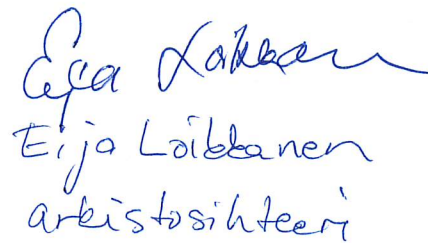 Eija Loikkanen
Eija Loikkanen
arkistosihteeri